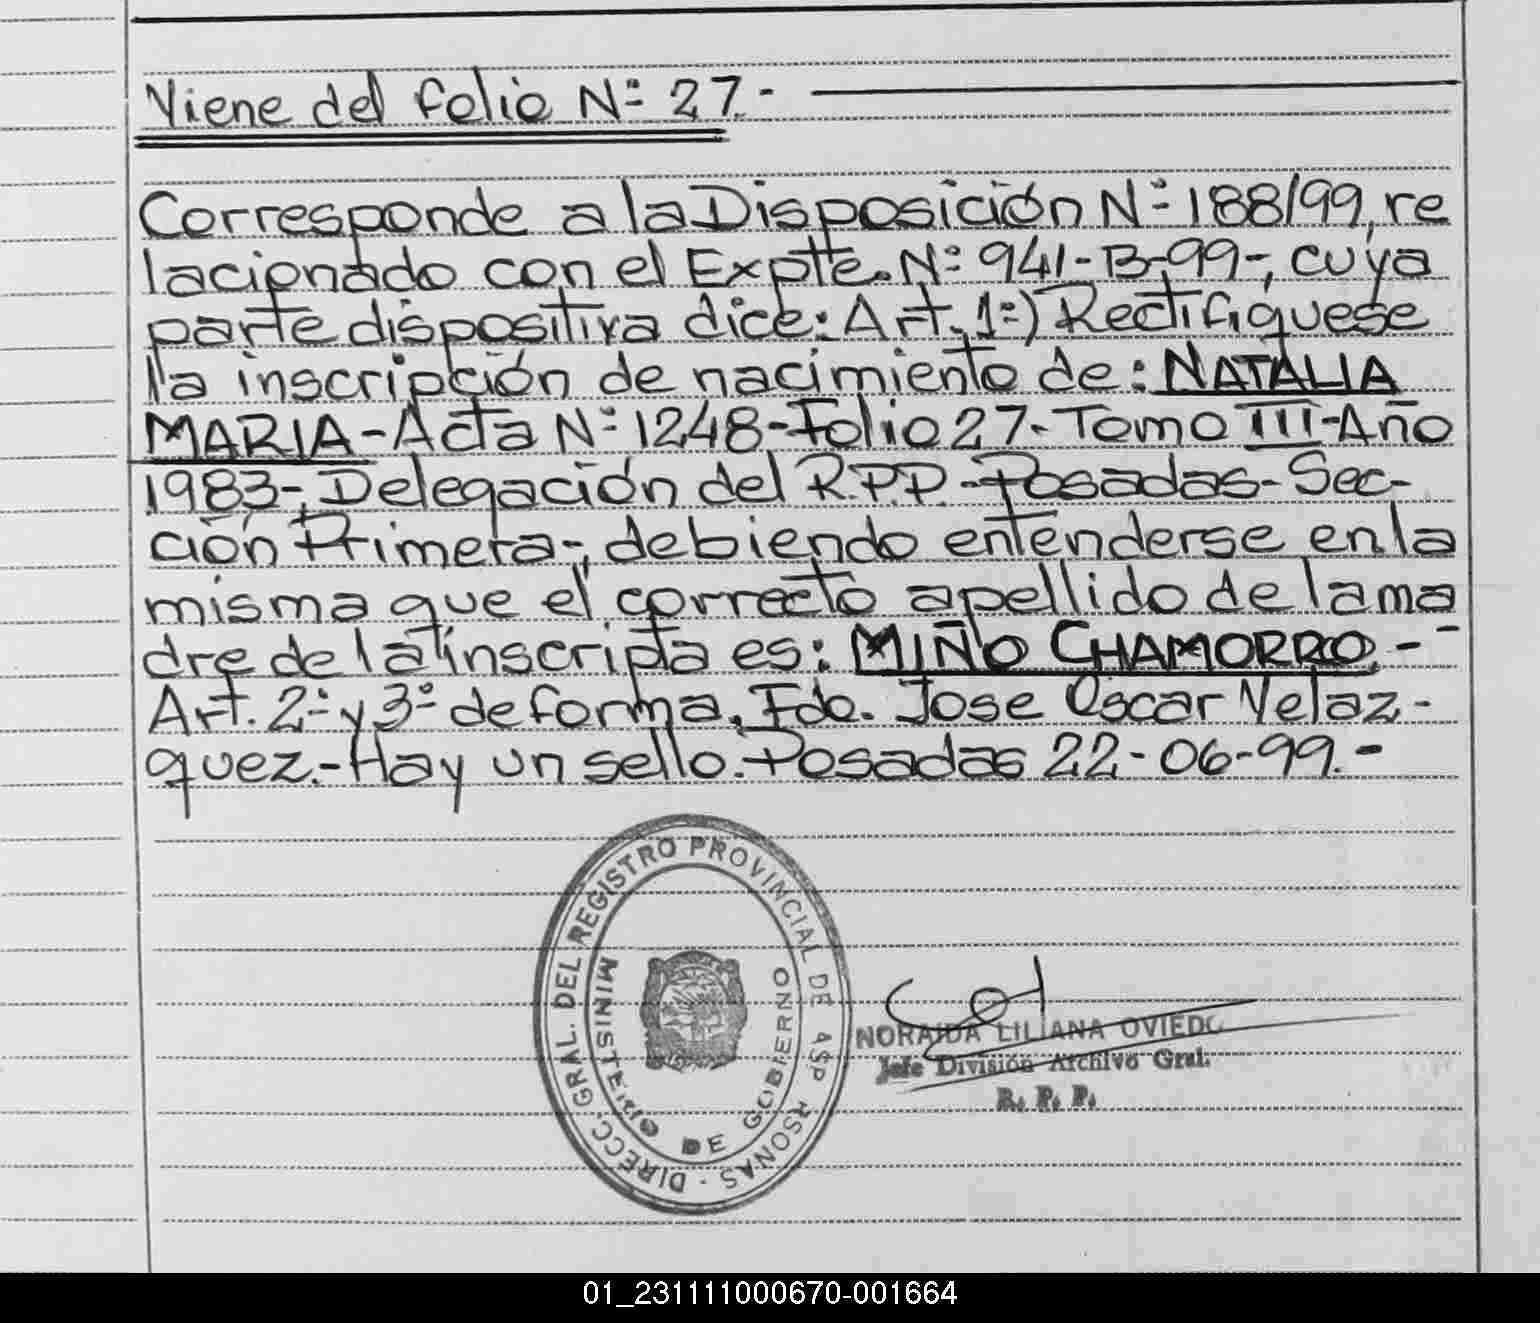 Viene del folio Nº 27.-
Corresponde a la Disposición Nº 188/99, re
lacionado con el Expte. Nº 941-B-99-, cuya
parte dispositiva dice: Art. 1º) Rectifíquese
la inscripción de nacimiento de: NATALIA
MARIA-Acta Nº 1248-Folio 27-Tomo III-Año
1983-, Delegación del R.P.P.-Posadas-Sec-
ción Primera-, debiendo entenderse en la
misma que el correcto apellido de la ma
dre de la inscripta es: MIÑO CHAMORRO.--
Art. 2º y 3º de forma. Fdo. Jose Oscar Velaz-
quez.-Hay un sello. Posadas 22-06-99.-
DIRECC. GRAL. DEL REGISTRO PROVINCIAL DE
MINISTERIO DE GOBIERNO
NORAIDA LILIANA OVIEDO
Jefe División Archivo Gral.
R. P. P.
01_231111000670-001664